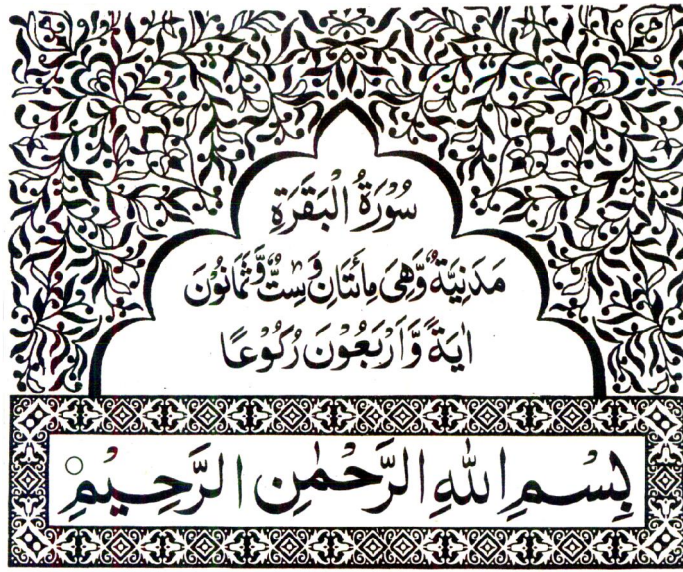 سُوْرَةُ الْبَقَرَةِ
مَدَنِيَّةٌ وَّهِیَ مِائَتَانِ وَسِتٌّ وَّثَمَانُوْنَ
اٰيَةً وَّاَرْبَعُوْنَ رُكُوْعًا
بِسْمِ اللّٰهِ الرَّحْمٰنِ الرَّحِيْمِ ○